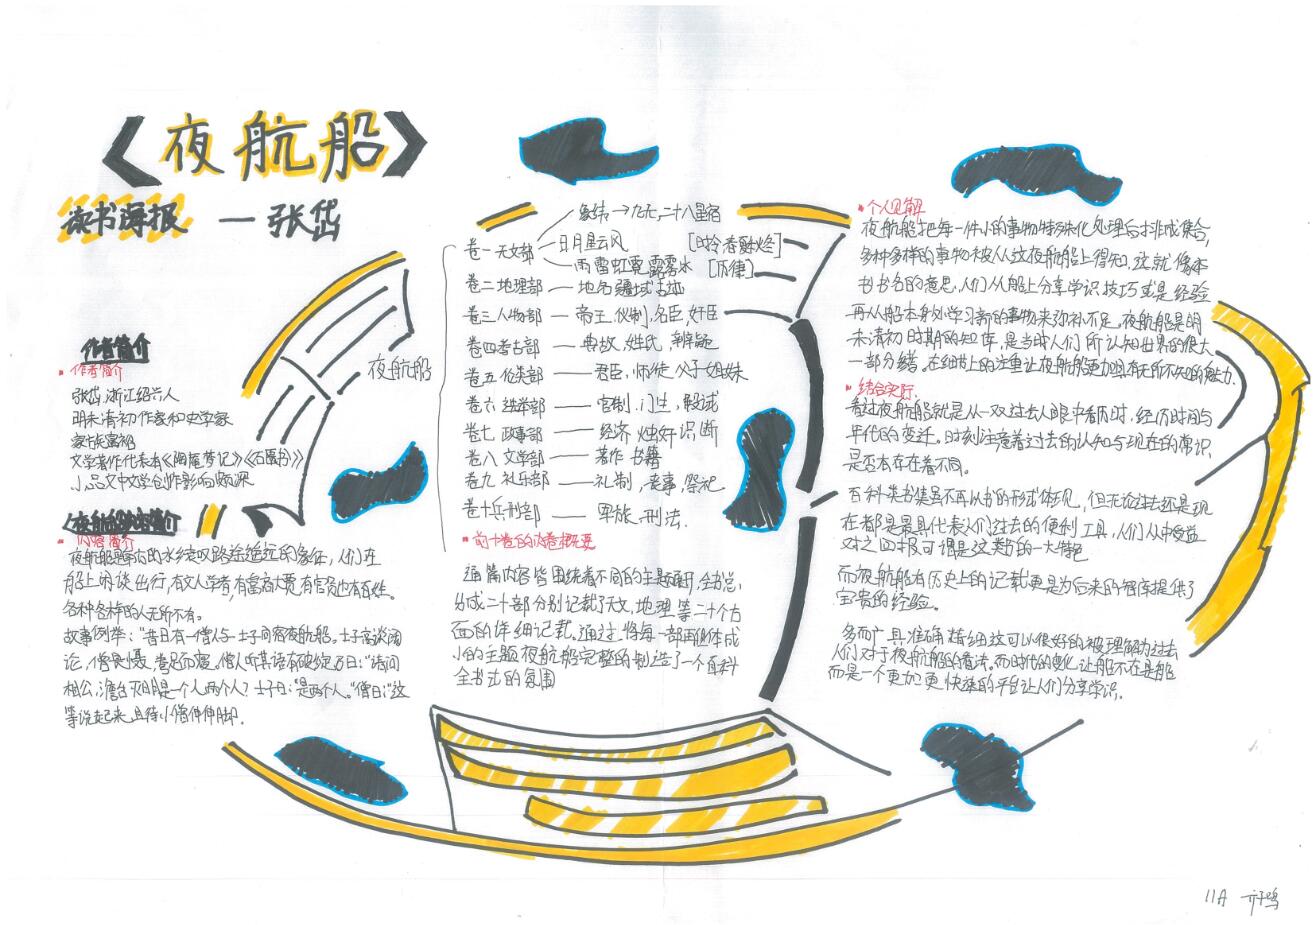 《夜航船》
读书海报 —张岱
作者简介
作者简介
张岱,浙江绍兴人
明末清初作家和史学家
文学著作代表有《陶庵梦记》《石匮书》
小品文中文学创作影响颇深
内容简介
夜航船是南方水乡叹路途遥远的象征,人们在
船上闲谈出行,有文人学者,有富商大贾,有官员也有百姓。
各种各样的人无所不有。
故事例举:“昔日有一僧人与一士子同宿夜航船。士子高谈阔
论,僧畏慑,卷足而寝。僧人听其语有破绽,乃曰:“请问
相公,澹台灭明是一个人两个人?士子曰:“是两个人。”僧曰:“这
等说起来,且待小僧伸伸脚.
夜航船
象纬→九天,二十八星宿
卷一天文部 日月星云风 [时令春夏秋冬]
雨雷虹雪露雾冰 [历律]
卷二地理部 — 地名疆域古迹
卷三人物部 — 帝王,仪制,名臣,奸臣
卷四考古部 — 典故,姓氏,辨疑
卷五伦类部 — 君臣,师徒,父子姐妹
卷六选举部 — 官制,门生,殿试
卷七政事部 — 经济 烛奸识断
卷八文学部 — 著作 书籍
卷九礼乐部 — 礼制,丧事,祭祀
卷十兵刑部 — 军旅,刑法.
前十卷的内卷概要
通篇内容皆围绕着不同的主题展开,全书总
分成二十部分别记载了天文,地理等二十个方
面的详细记载。通过将每一部再具体成
小的主题夜航船完整的制造了一个百科
全书式的氛围
个人见解
夜航船把每一件小的事物特殊化处理后排成集合,
多种多样的事物被人从这夜航船上得知,这就像本
书书名的意思,人们从船上分享学识技巧或是经验
再从船本身外学习新的事物来弥补不足。夜航船是明
末清初时期的知库,是当时人们所认知世界的很大
一部分缮。在细节上的注重让夜航船更加具有无所不知的魅力.
结合实际.
看过夜航船就是从一双过去人眼中看历时,经历时间与
年代的变迁。时刻注意着过去的认知与现在的常识
是否存在着不同。
百科类书集虽不再以书的形式体现,但无论过去还是现
在都是最具代表人们过去的便利工具,人们从中受益
对之回报可谓是这类书的一大特色
而夜航船有历史上的记载更是为后来的智库提供了
宝贵的经验。
多而广,具准确,精细这可以很好的被理解为过去
人们对于夜航船的看法。而时代的变化让船不在是船
而是一个更加更快速的平台让人们分享学识.
11A